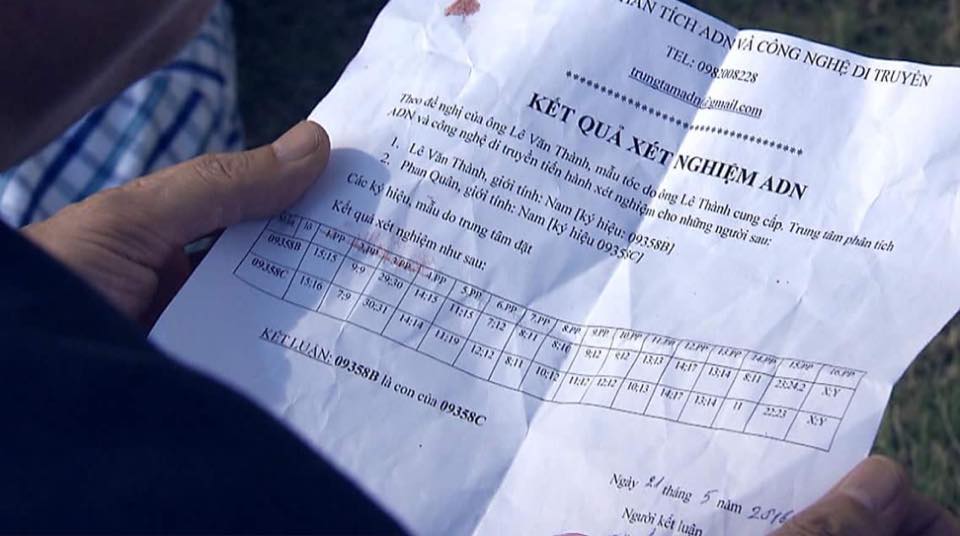 TÍCH ADN VÀ CÔNG NGHỆ DI TRUYỀN
TEL: 0982008228
trungtamadn@gmail.com
********************************
KẾT QUẢ XÉT NGHIỆM ADN
Theo đề nghị của ông Lê Văn Thành, mẫu tóc do ông Lê Thành cung cấp. Trung tâm phân tích
ADN và công nghệ di truyền tiến hành xét nghiệm cho những người sau:
1. Lê Văn Thành, giới tính: Nam [ký hiệu: 09358B]
2. Phan Quân, giới tính: Nam [ký hiệu 09358C]
Các ký hiệu, mẫu do trung tâm đặt
Kết quả xét nghiệm như sau:
1.PP 2.PP 3.PP 4.PP 5.PP 6.PP 7.PP 8.PP 9.PP 10.PP 11.PP 12.PP 13.PP 14.PP 15.PP 16.PP
09358B 15;15 9;9 29;30 14;15 11;15 7;12 8;11 9;12 9;12 13;13 14;17 13;14 8;11 23;24.2 X;Y
09358C 15;16 7;9 30;31 14;14 11;19 12;12 8;11 10;12 11;12 12;12 10;13 14;17 13;14 11 22;23 X;Y
KẾT LUẬN: 09358B là con của 09358C
Ngày 21 tháng 5 năm 2016
Người kết luận